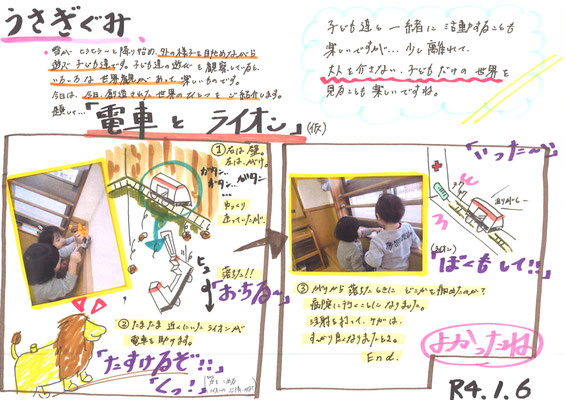 うさぎぐみ
雪がとうとう〜と降り始め、外の様子を目で眺めながら
遊ぶ子ども達です。子ども達の遊びを観察していると、
いろいろな世界観があって楽しいものです。
今日は、今日、創造された世界のひとつをご紹介します。
題して…
「電車とライオン」(仮)
子ども達と一緒に活動することも
楽しいですが… 少し離れて、
大人を介さない、子どもだけの世界を
見ることも楽しいですね。
①右は壁。
左は、がけ。
ガタン…
ガタン…
ガタン…
ゆっくり
走っていたが
ヒュー
落ちた!!
「おちる〜
②たまたま近くにいたライオンが
電車を助けます。
「たすけるぞ!!」
「くっ!」
「いった〜い」
(ライオン)
「ぼくもして!!」
③がけから落ちたときにどこかを痛めたのか?
病院に行くことになりました。
注射を打って、ケガは、
すっかり良くなりましたとさ。
End.
よかったね
R4.1.6